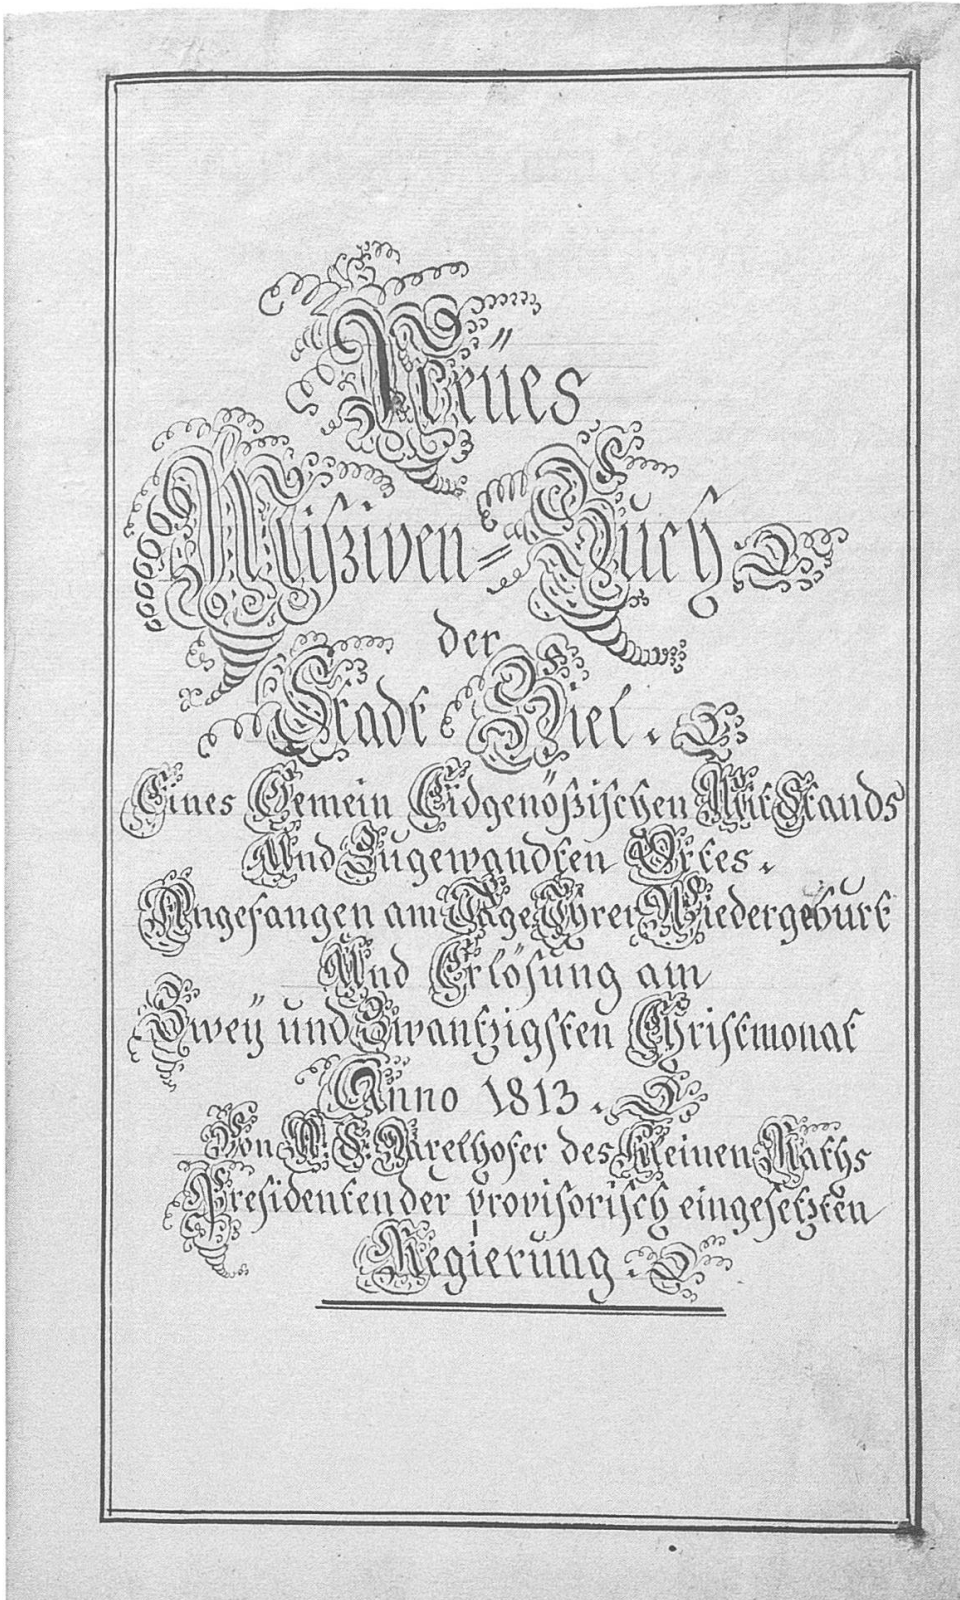 Neües
Mißiven=Buch
der
Stadt Biel.
Eines Gemein Eidgenößischen Mit Stands
Und Zugewandten Ortes.
Angefangen am Tage Ihrer Wiedergeburt
Und Erlösung am
Zweÿ und Zwantzigsten Christmonat
Anno 1813.
Von A. F. des Kleinen Raths
Presidenten der provisorisch eingesetzten
Regierung.